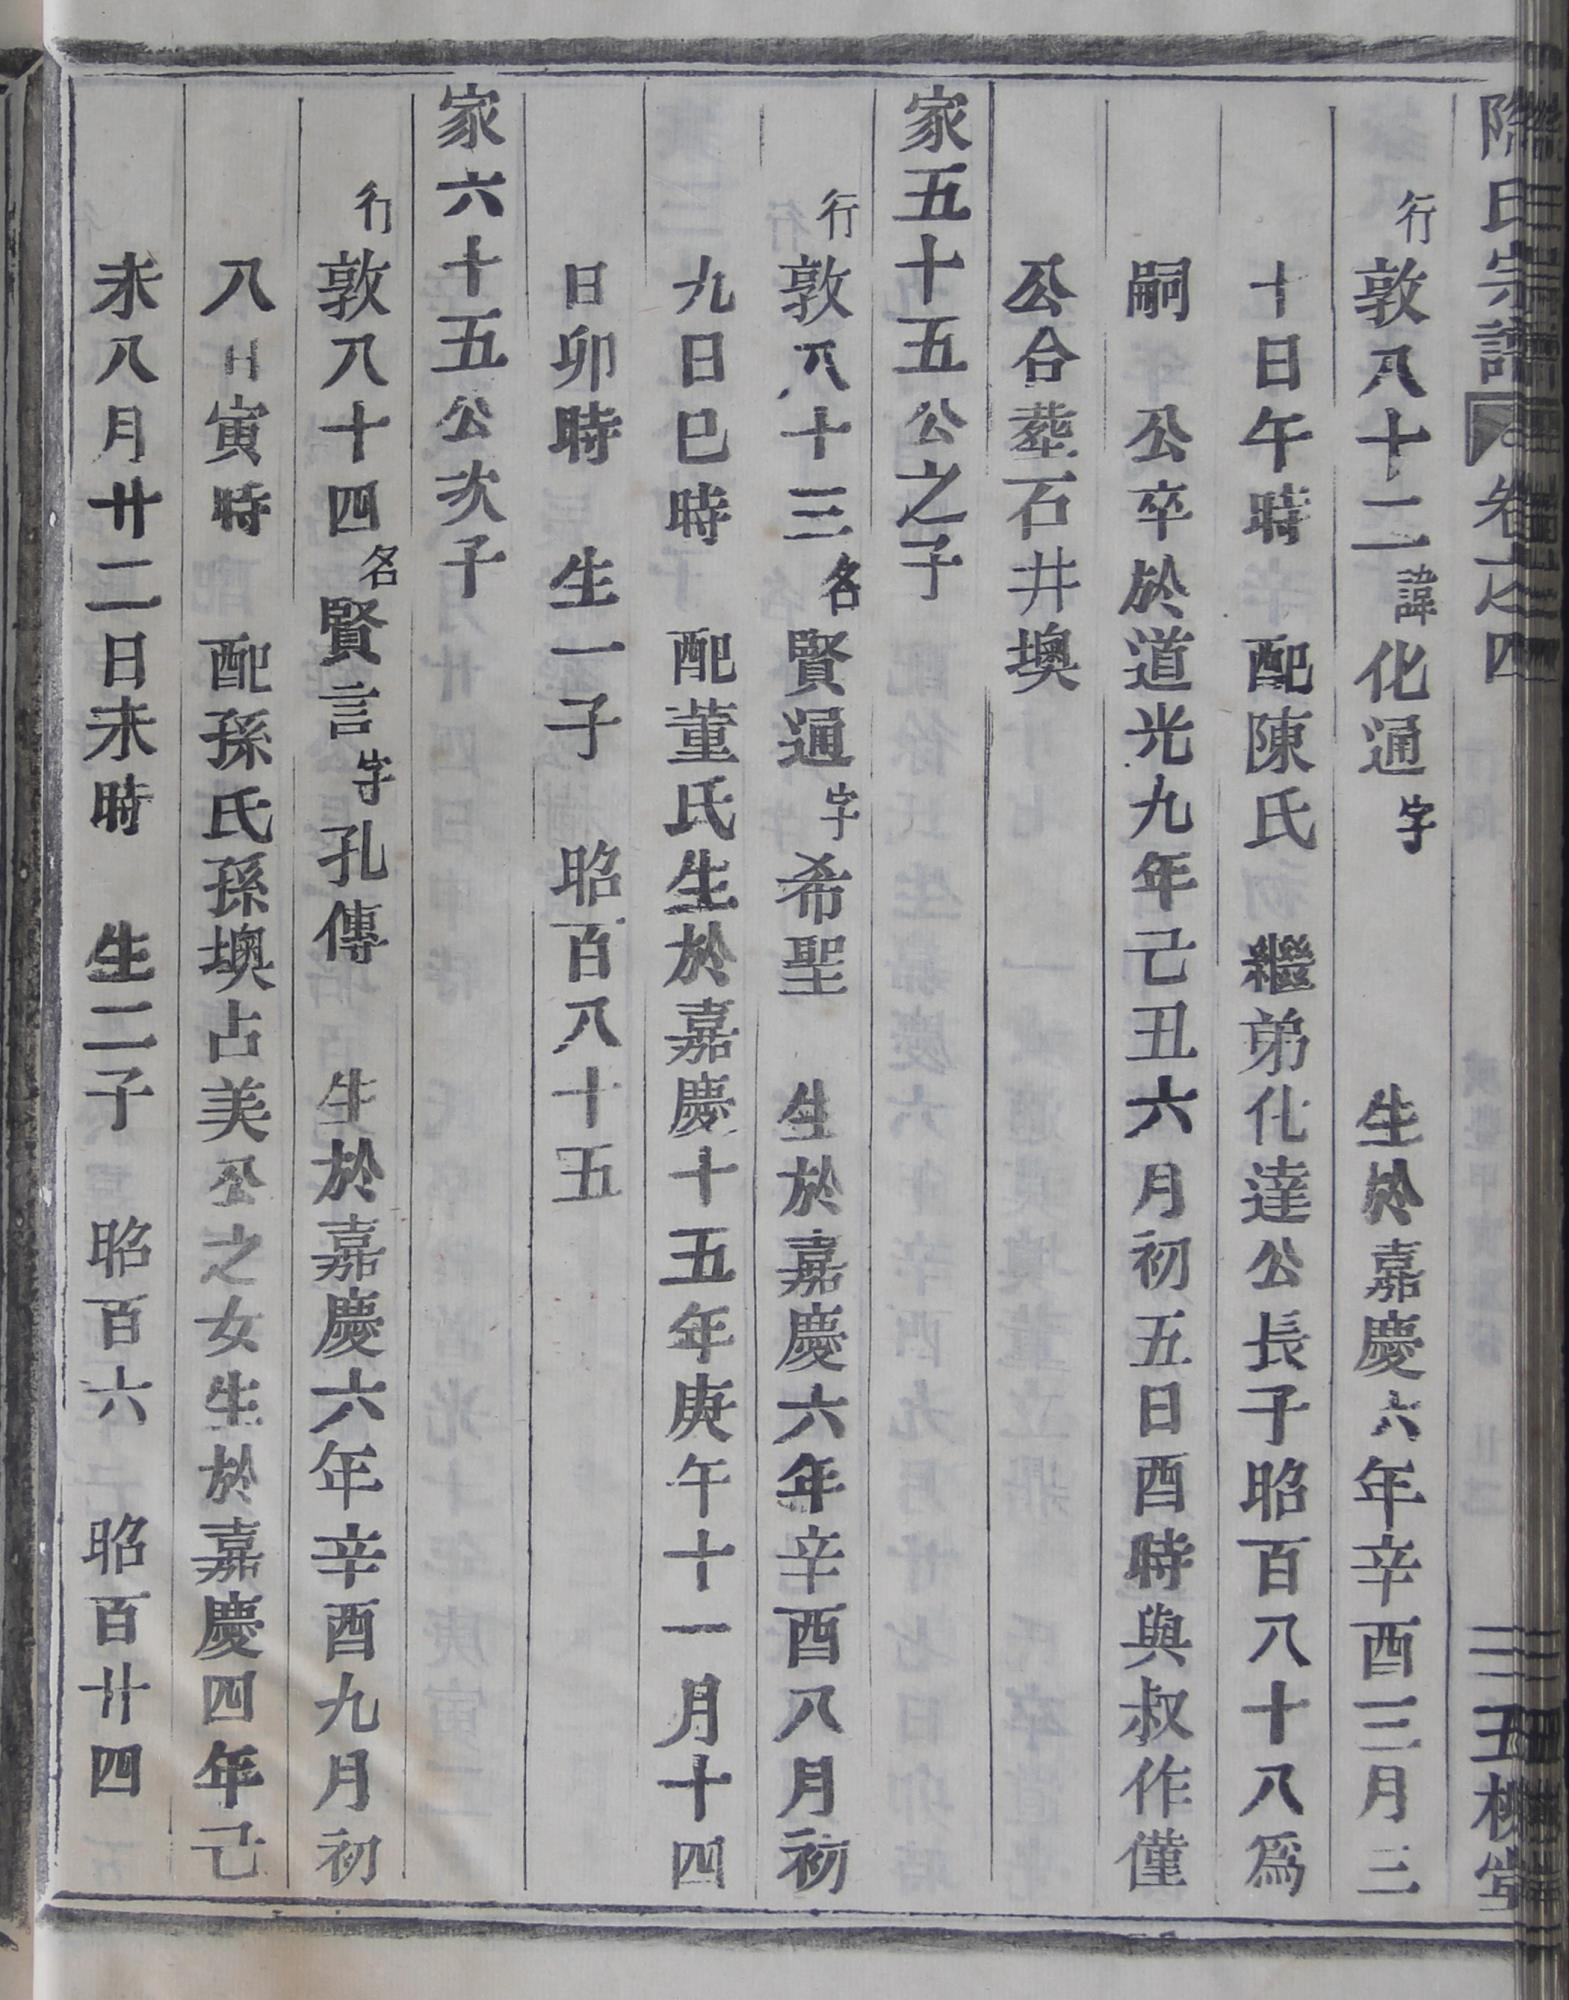 陳氏宗譜 卷之四 三 五桂堂
行敦八十二諱化通字 生於嘉慶六年辛酉三月三
十日午時 配陳氏 繼弟化達公長子昭百八十八爲
嗣 公卒於道光九年己丑六月初五日酉時與叔作僅
公合葬石井墺
家五十五公之子
行敦八十三名賢通字希聖 生於嘉慶六年辛酉八月初
九日巳時 配董氏生於嘉慶十五年庚午十一月十四
日卯時 生一子 昭百八十五
家六十五公次子
行敦八十四名賢言字孔傳 生於嘉慶六年辛酉九月初
八日寅時 配孫氏孫墺占美公之女生於嘉慶四年己
未八月廿二日未時 生二子 昭百六 昭百廿四